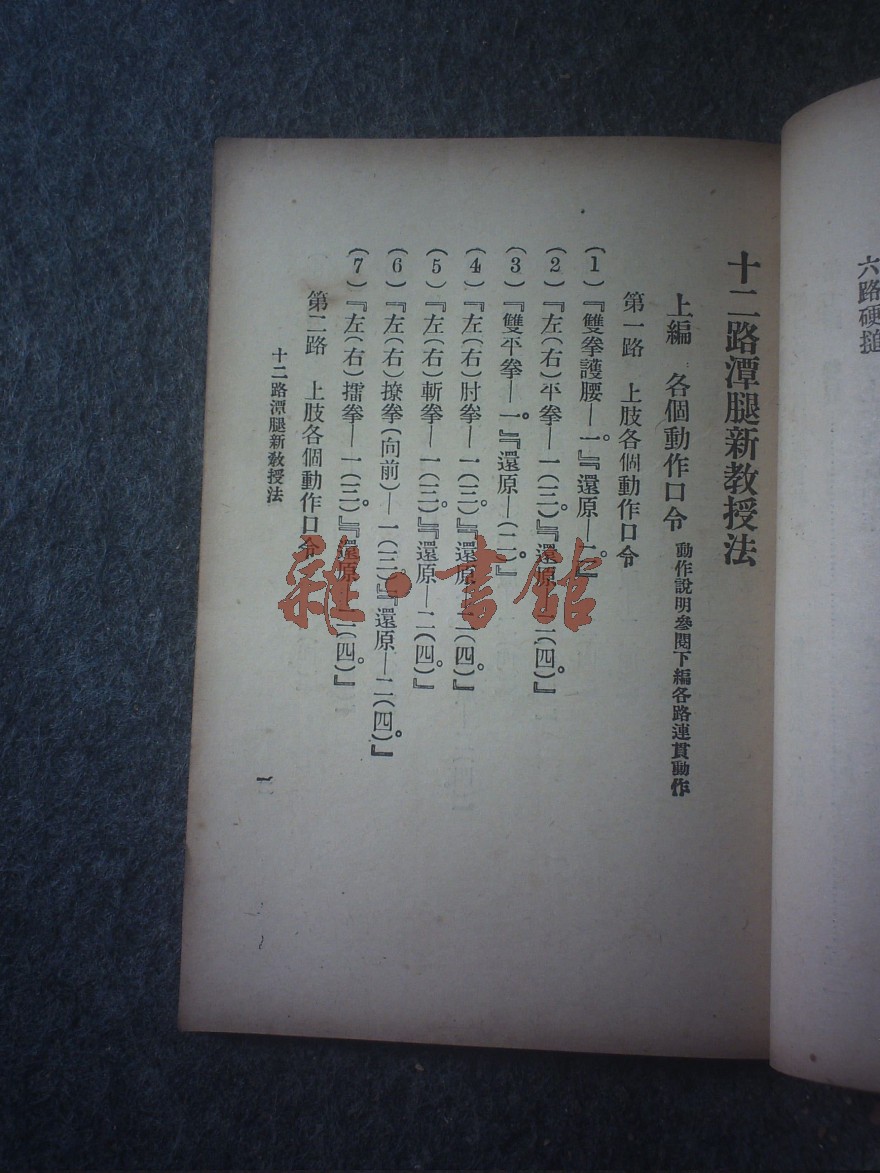 六路硬搥
十二路潭腿新教授法
上編 各個動作口令 動作說明參閱下編各路連貫動作
第一路 上肢各個動作口令
(1)『雙拳護腰—一。』『還原—二。』
(2)『左(右)平拳—一(三)。』『還原—二(四)。』
(3)『雙平拳—一。』『還原—(二)。』
(4)『左(右)肘拳—一(三)。』『還原—二(四)。』
(5)『左(右)斬拳—一(三)。』『還原—二(四)。』
(6)『左(右)撩拳(向前)—一(三)。』『還原—二(四)。』
(7)『左(右)擂拳—一(三)。』『還原—二(四)。』
第二路 上肢各個動作口令
十二路潭腿新教授法
一
雜·書館